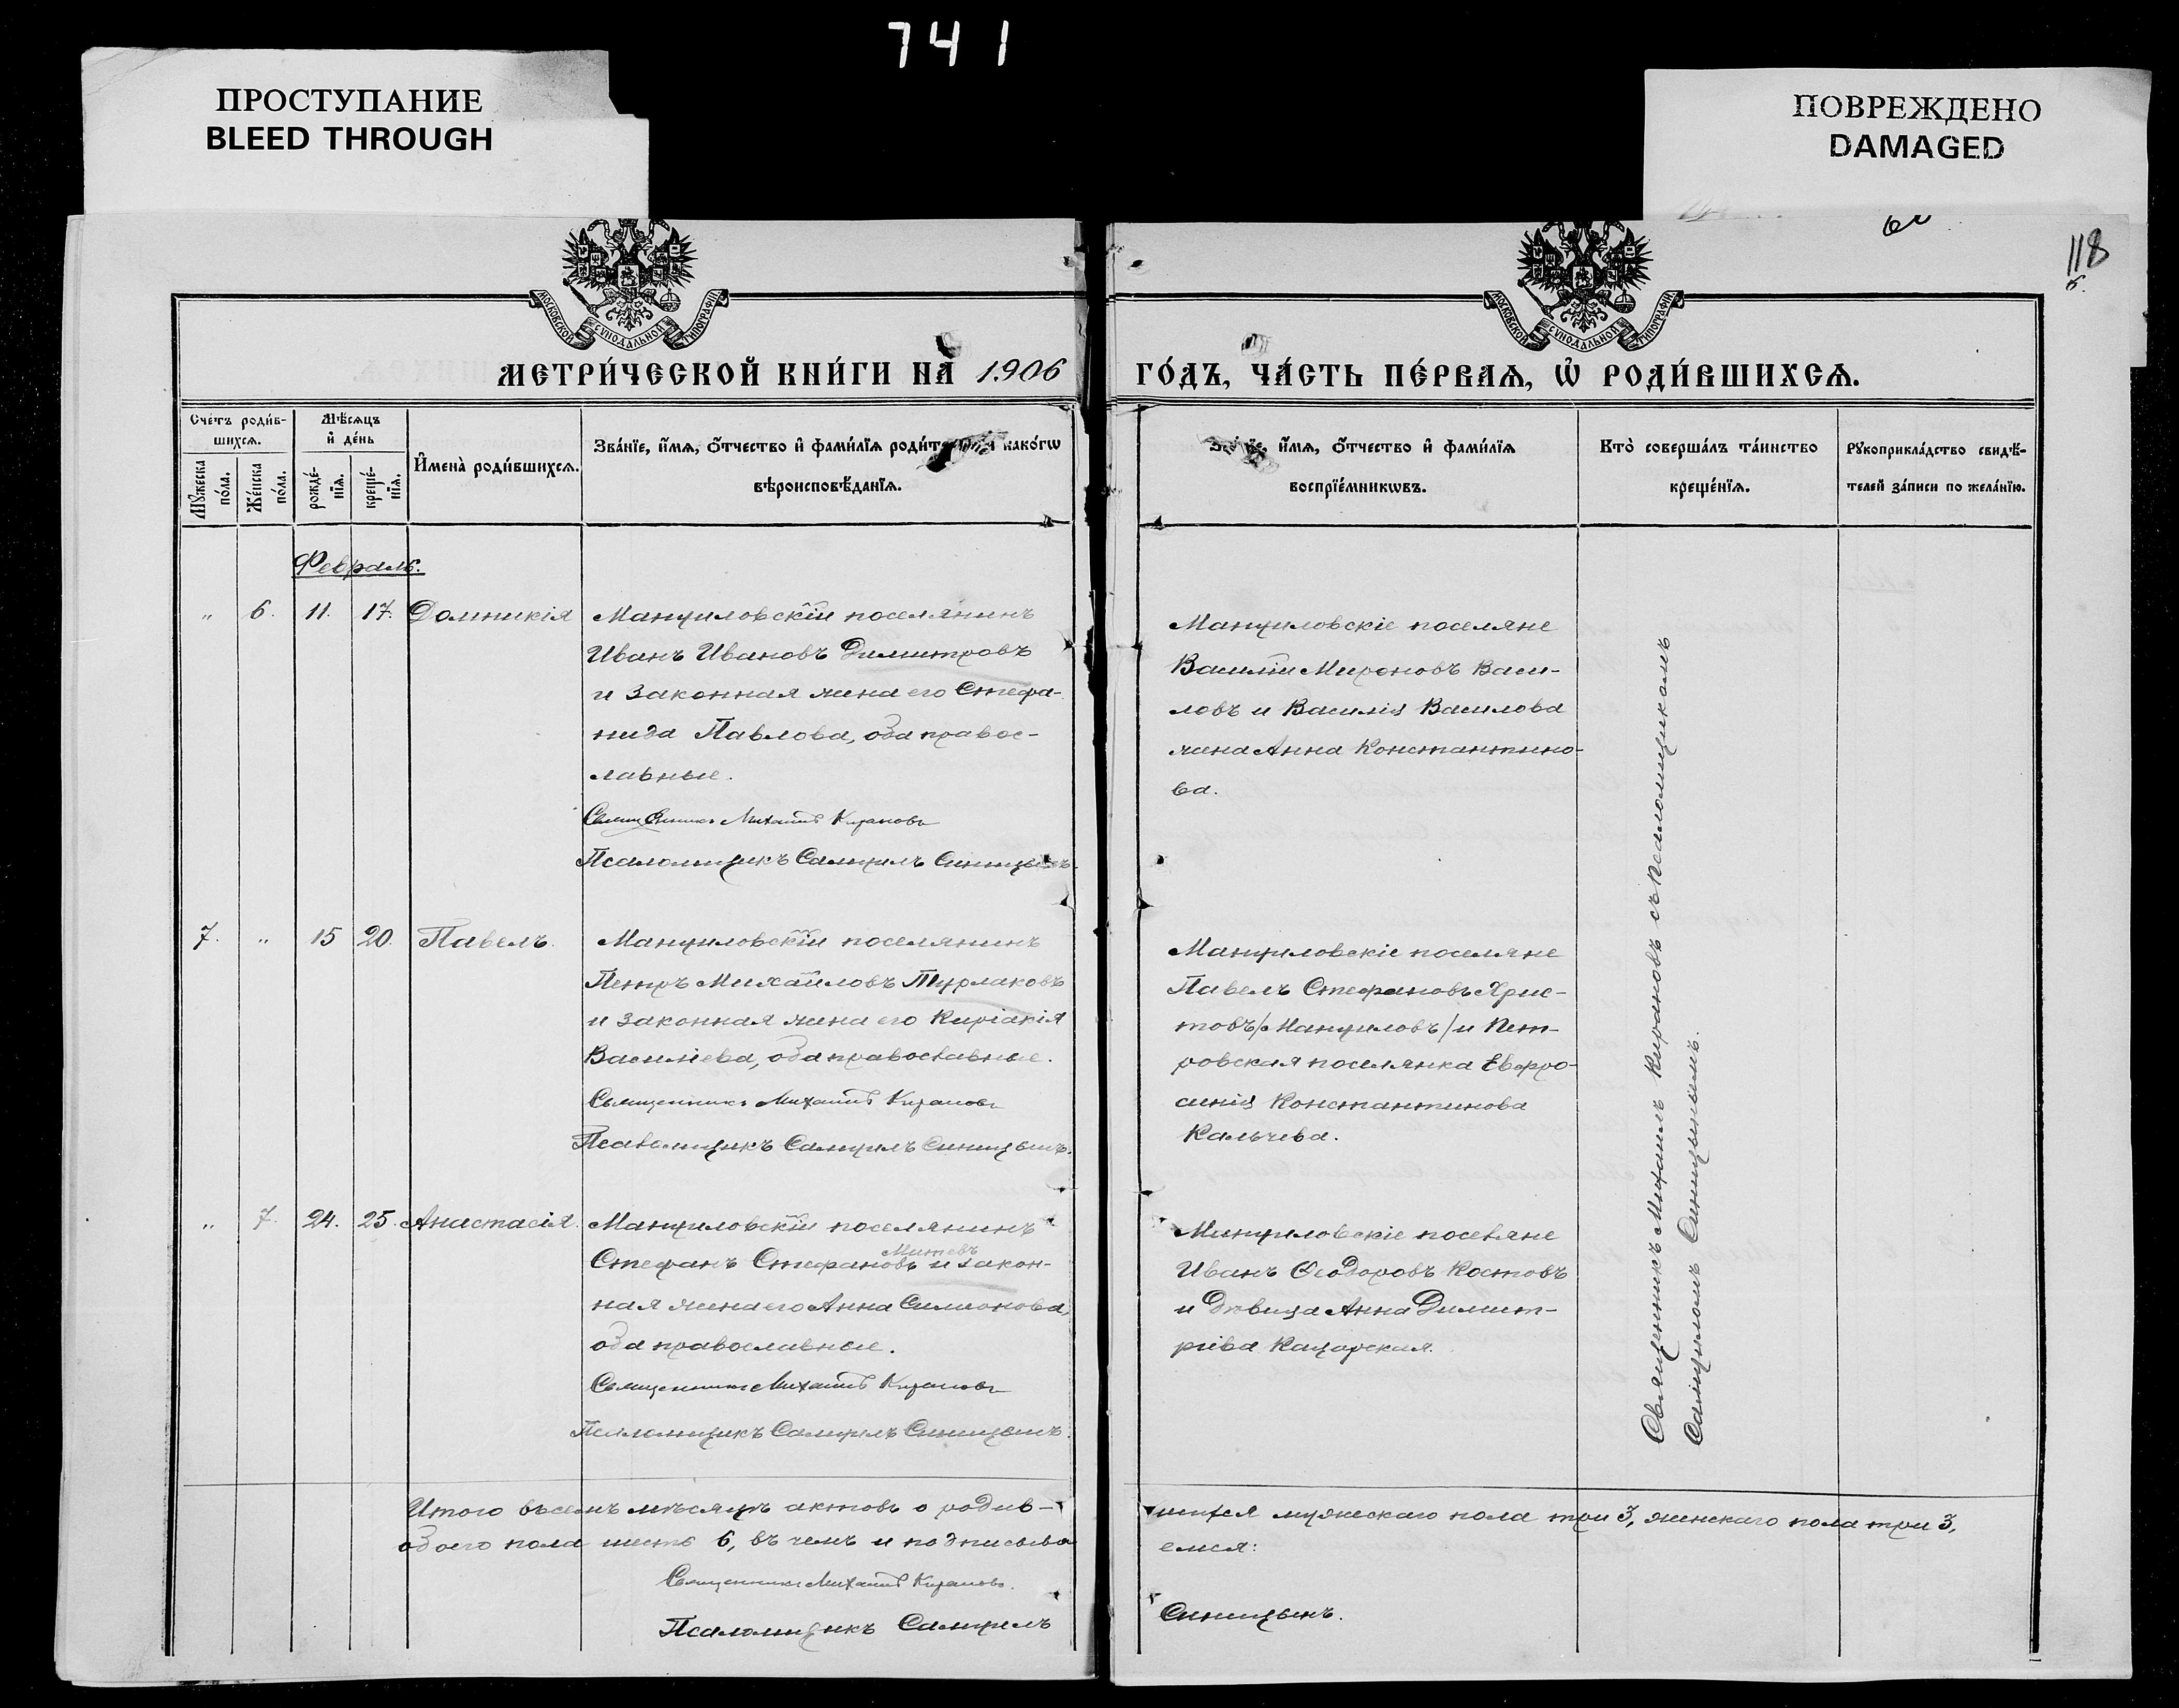 741
ПРОСТУПАНИЕ
BLEED THROUGH
ПОВРЕЖДЕНО
DAMAGED
118
МОСКОВСКОЙ СУНОДАЛЬНОЙ ТИПОГРАФІИ
МОСКОВСКОЙ СУНОДАЛЬНОЙ ТИПОГРАФІИ
МЕТРИ́ЧЕСКОЙ КНИ́ГИ НА̀ 1906
ГО́ДЪ, ЧА́СТЬ ПЕ́РВАѦ, Ѡ҆ РОДИ́ВШИХСѦ.
Сче́тъ роди́в-
шихсѧ.
Мꙋ́жеска по́ла.
Же́нска по́ла.
Мѣ́сѧцъ
и҆ де́нь
рожде́-
нїѧ.
креще́-
нїѧ.
И҆мена̀ роди́вшихсѧ.
Зва́нїе, и҆́мѧ, ѻ҆́тчество и҆ фами́лїѧ како́гѡ
вѣроисповѣ́данїѧ.
и҆́мѧ, ѻ҆́тчество и҆ фами́лїѧ
воспрїе́мникѡвъ.
Кто̀ соверша́лъ та́инство
креще́нїѧ.
Рꙋкоприкла́дство свидѣ́-
телей за́писи по жела́нїю.
Февраль.
" 6. 11. 17. Домникія
Мануиловскій поселянинъ
Иванъ Ивановъ Димитровъ
и законная жена его Стефа-
нида Павлова, оба правос-
лавные.
Священникъ Михаилъ Кирановъ
Псаломщикъ Самуилъ Синицынъ.
Мануиловскіе поселяне
Василій Мироновъ Васи-
ловъ и Василія Василова
жена Анна Константино-
ва.
7. " 15 20. Павелъ.
Мануиловскій поселянинъ
Петръ Михайловъ Турлаковъ
и законная жена его Киріакія
Василіева, оба православные.
Священникъ Михаилъ Кирановъ
Псаломщикъ Самуилъ Синицынъ.
Мануиловскіе поселяне
Павелъ Стефановъ Хрис-
товъ /Мануиловъ/ и Пет-
ровская поселянка Евфро-
синія Константинова
Кальчева.
" 7. 24. 25. Анастасія.
Мануиловскій поселянинъ
Митевъ
Стефанъ Стефановъ и закон-
ная жена его Анна Симеонова,
оба православные.
Священникъ Михаилъ Кирановъ
Псаломщикъ Самуилъ Синицынъ.
Мануиловскіе поселяне
Иванъ Ѳеодоровъ Костовъ
и дѣвица Анна Димит-
ріева Кацарская.
Священникъ Михаилъ Кирановъ съ псаломщикомъ
Самуиломъ Синицынымъ.
Итого въ семъ мѣсяцѣ актовъ о родив-
шихся мужескаго пола три 3, женскаго пола три 3,
обоего пола шесть 6, въ чемъ и подписыва
емся:
Священникъ Михаилъ Кирановъ.
Псаломщикъ Самуилъ
Синицынъ.